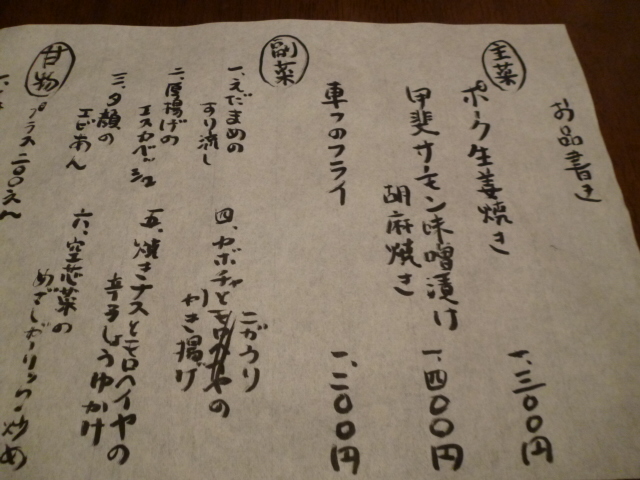 お品書き
主菜
ポーク生姜焼き 一、三〇〇円
甲斐サーモン味噌漬け
胡麻焼き 一、四〇〇円
車フのフライ 一、二〇〇円
副菜
一、えだまめの
すり流し
二、厚揚げの
エスカベッシュ
三、夕顔の
エビあん
四、カボチャとニガウリの
かき揚げ
五、焼きナスとモロヘイヤの
辛子しょうゆかけ
六、空芯菜の
めざしガーリック炒め
甘物
プラス二〇〇えん